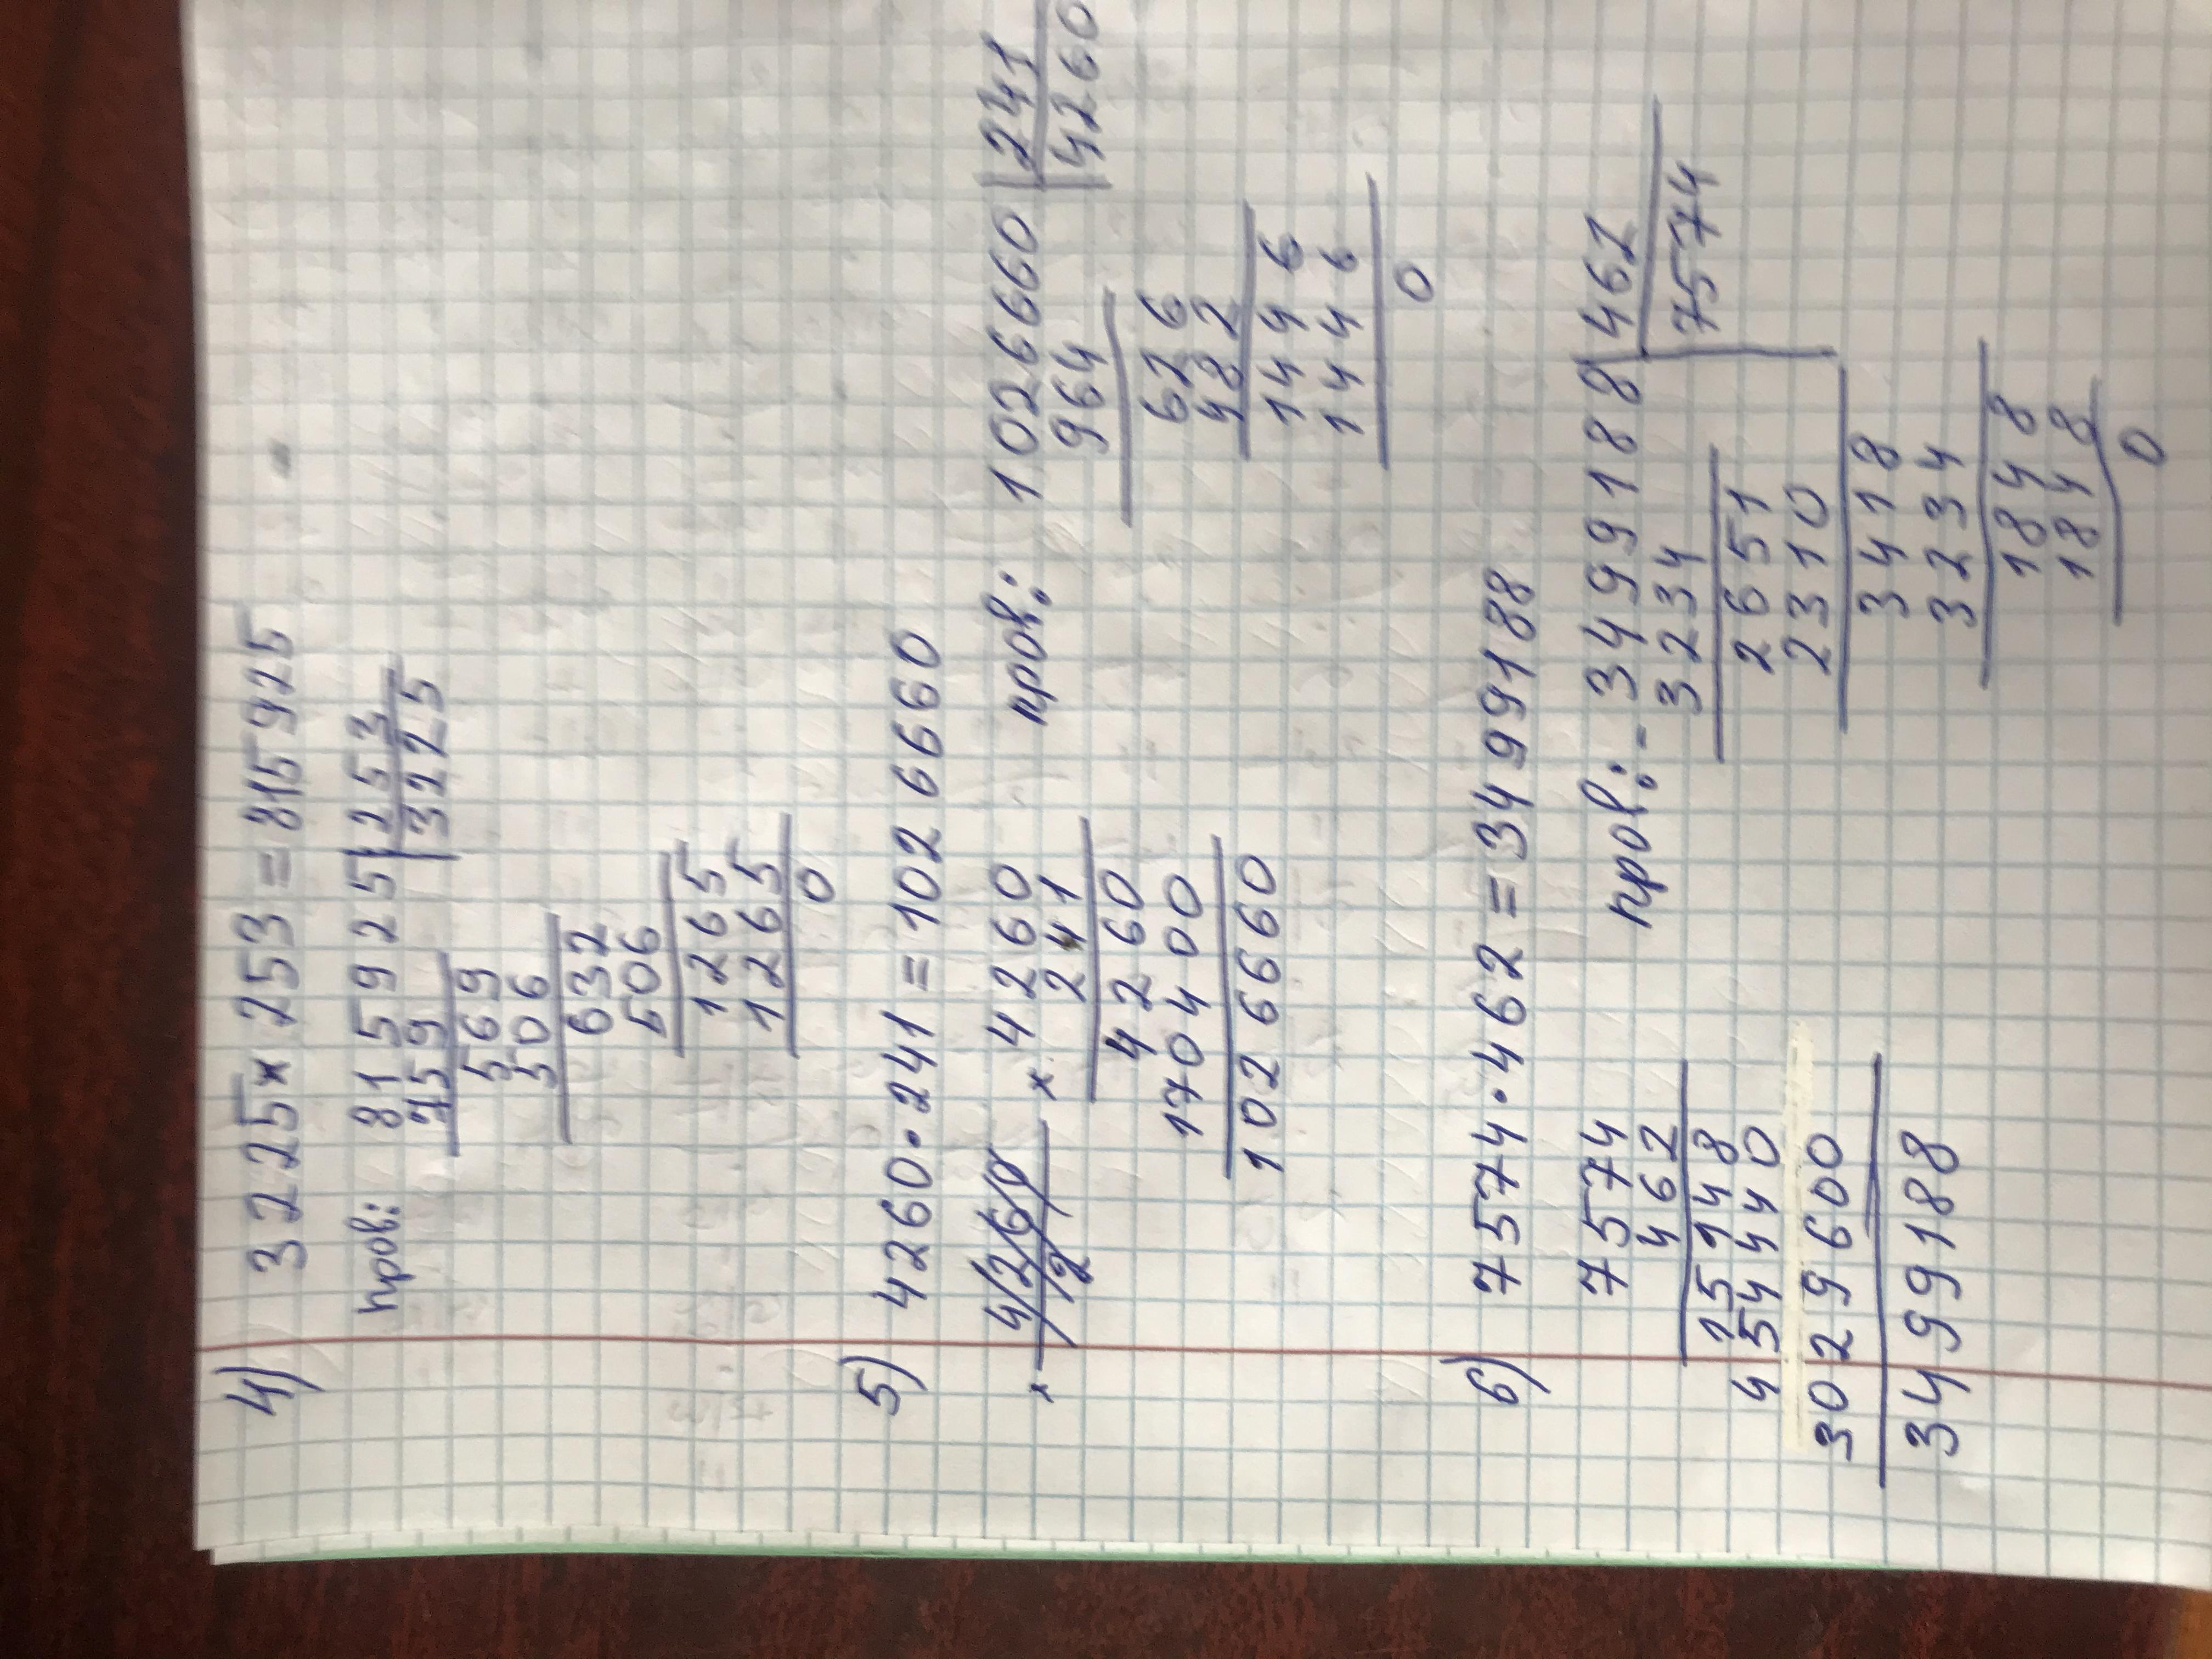 4) 3225 × 253 = 815925
пров: 815925 | 253
759 | 3225
569
506
632
506
1265
1265
0
5) 4260 · 241 = 1026660
× 4260
241
4260
170400
1026660
пров: 1026660 | 241
964 | 4260
626
482
1446
1446
0
6) 7574 · 462 = 3499188
7574
462
15148
454440
3029600
3499188
пров: - 3499188 | 462
3234 | 7574
2651
2310
3418
3234
1848
1848
0